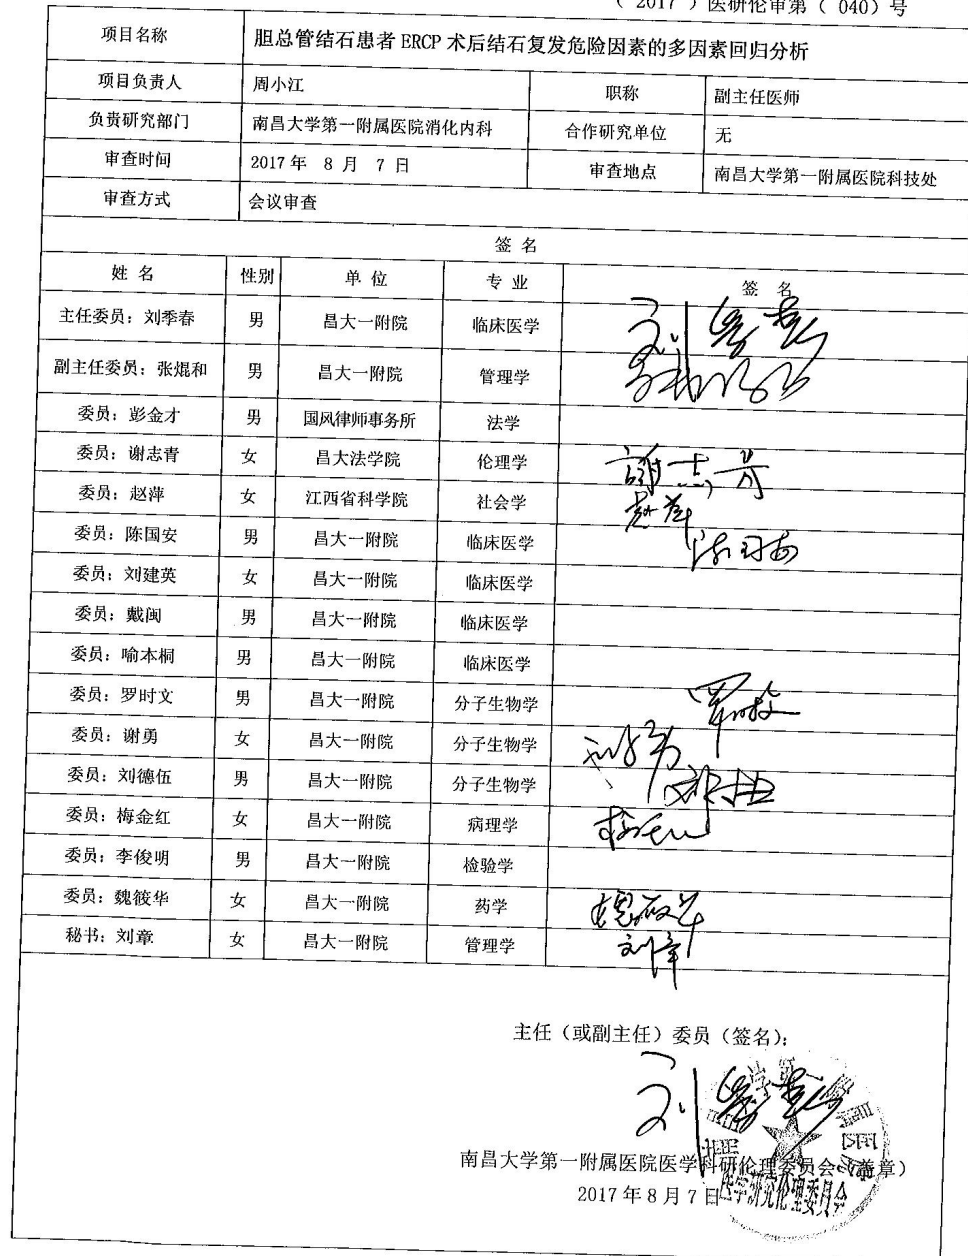 （ 2017 ）医研伦审第（ 040）号
项目名称 胆总管结石患者 ERCP 术后结石复发危险因素的多因素回归分析
项目负责人 周小江 职称 副主任医师
负责研究部门 南昌大学第一附属医院消化内科 合作研究单位 无
审查时间 2017 年 8 月 7 日 审查地点 南昌大学第一附属医院科技处
审查方式 会议审查
签 名
姓 名 性别 单 位 专 业 签 名
主任委员：刘季春 男 昌大一附院 临床医学 刘季春
副主任委员：张焜和 男 昌大一附院 管理学
委员：彭金才 男 国风律师事务所 法学
委员：谢志青 女 昌大法学院 伦理学 谢志青
委员：赵萍 女 江西省科学院 社会学 赵萍
委员：陈国安 男 昌大一附院 临床医学 陈国安
委员：刘建英 女 昌大一附院 临床医学
委员：戴闽 男 昌大一附院 临床医学
委员：喻本桐 男 昌大一附院 临床医学
委员：罗时文 男 昌大一附院 分子生物学 罗时文
委员：谢勇 女 昌大一附院 分子生物学
委员：刘德伍 男 昌大一附院 分子生物学
委员：梅金红 女 昌大一附院 病理学
委员：李俊明 男 昌大一附院 检验学
委员：魏筱华 女 昌大一附院 药学 魏筱华
秘书：刘章 女 昌大一附院 管理学 刘章
主任（或副主任）委员（签名）：
刘季春
南昌大学第一附属医院医学科研伦理委员会（盖章）
2017 年 8 月 7 日
医学研究伦理委员会